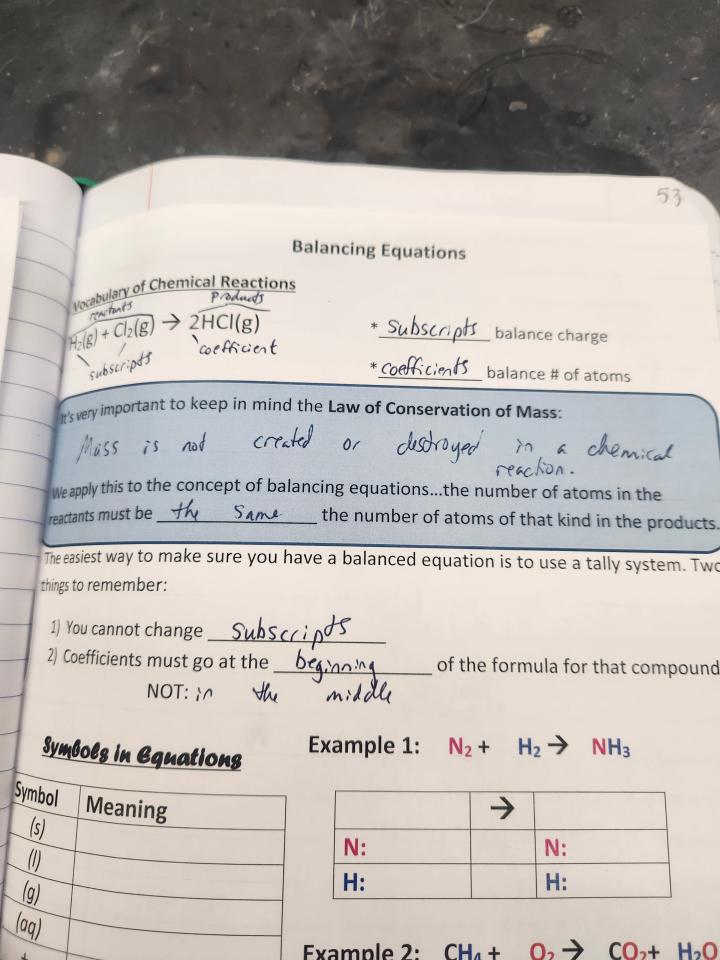 53
Balancing Equations
Vocabulary of Chemical Reactions
reactants Products
H₂(g) + Cl₂(g) → 2HCl(g)
subscripts coefficient
* subscripts balance charge
* coefficients balance # of atoms
It's very important to keep in mind the Law of Conservation of Mass:
Mass is not created or destroyed in a chemical
reaction.
We apply this to the concept of balancing equations...the number of atoms in the
reactants must be the same the number of atoms of that kind in the products.
The easiest way to make sure you have a balanced equation is to use a tally system. Two
things to remember:
1) You cannot change subscripts
2) Coefficients must go at the beginning of the formula for that compound
NOT: in the middle
Symbols in Equations
Symbol Meaning
(s)
(l)
(g)
(aq)
Example 1: N₂ + H₂ → NH₃
→
N: N:
H: H:
Example 2: CH₄ + O₂ → CO₂ + H₂O